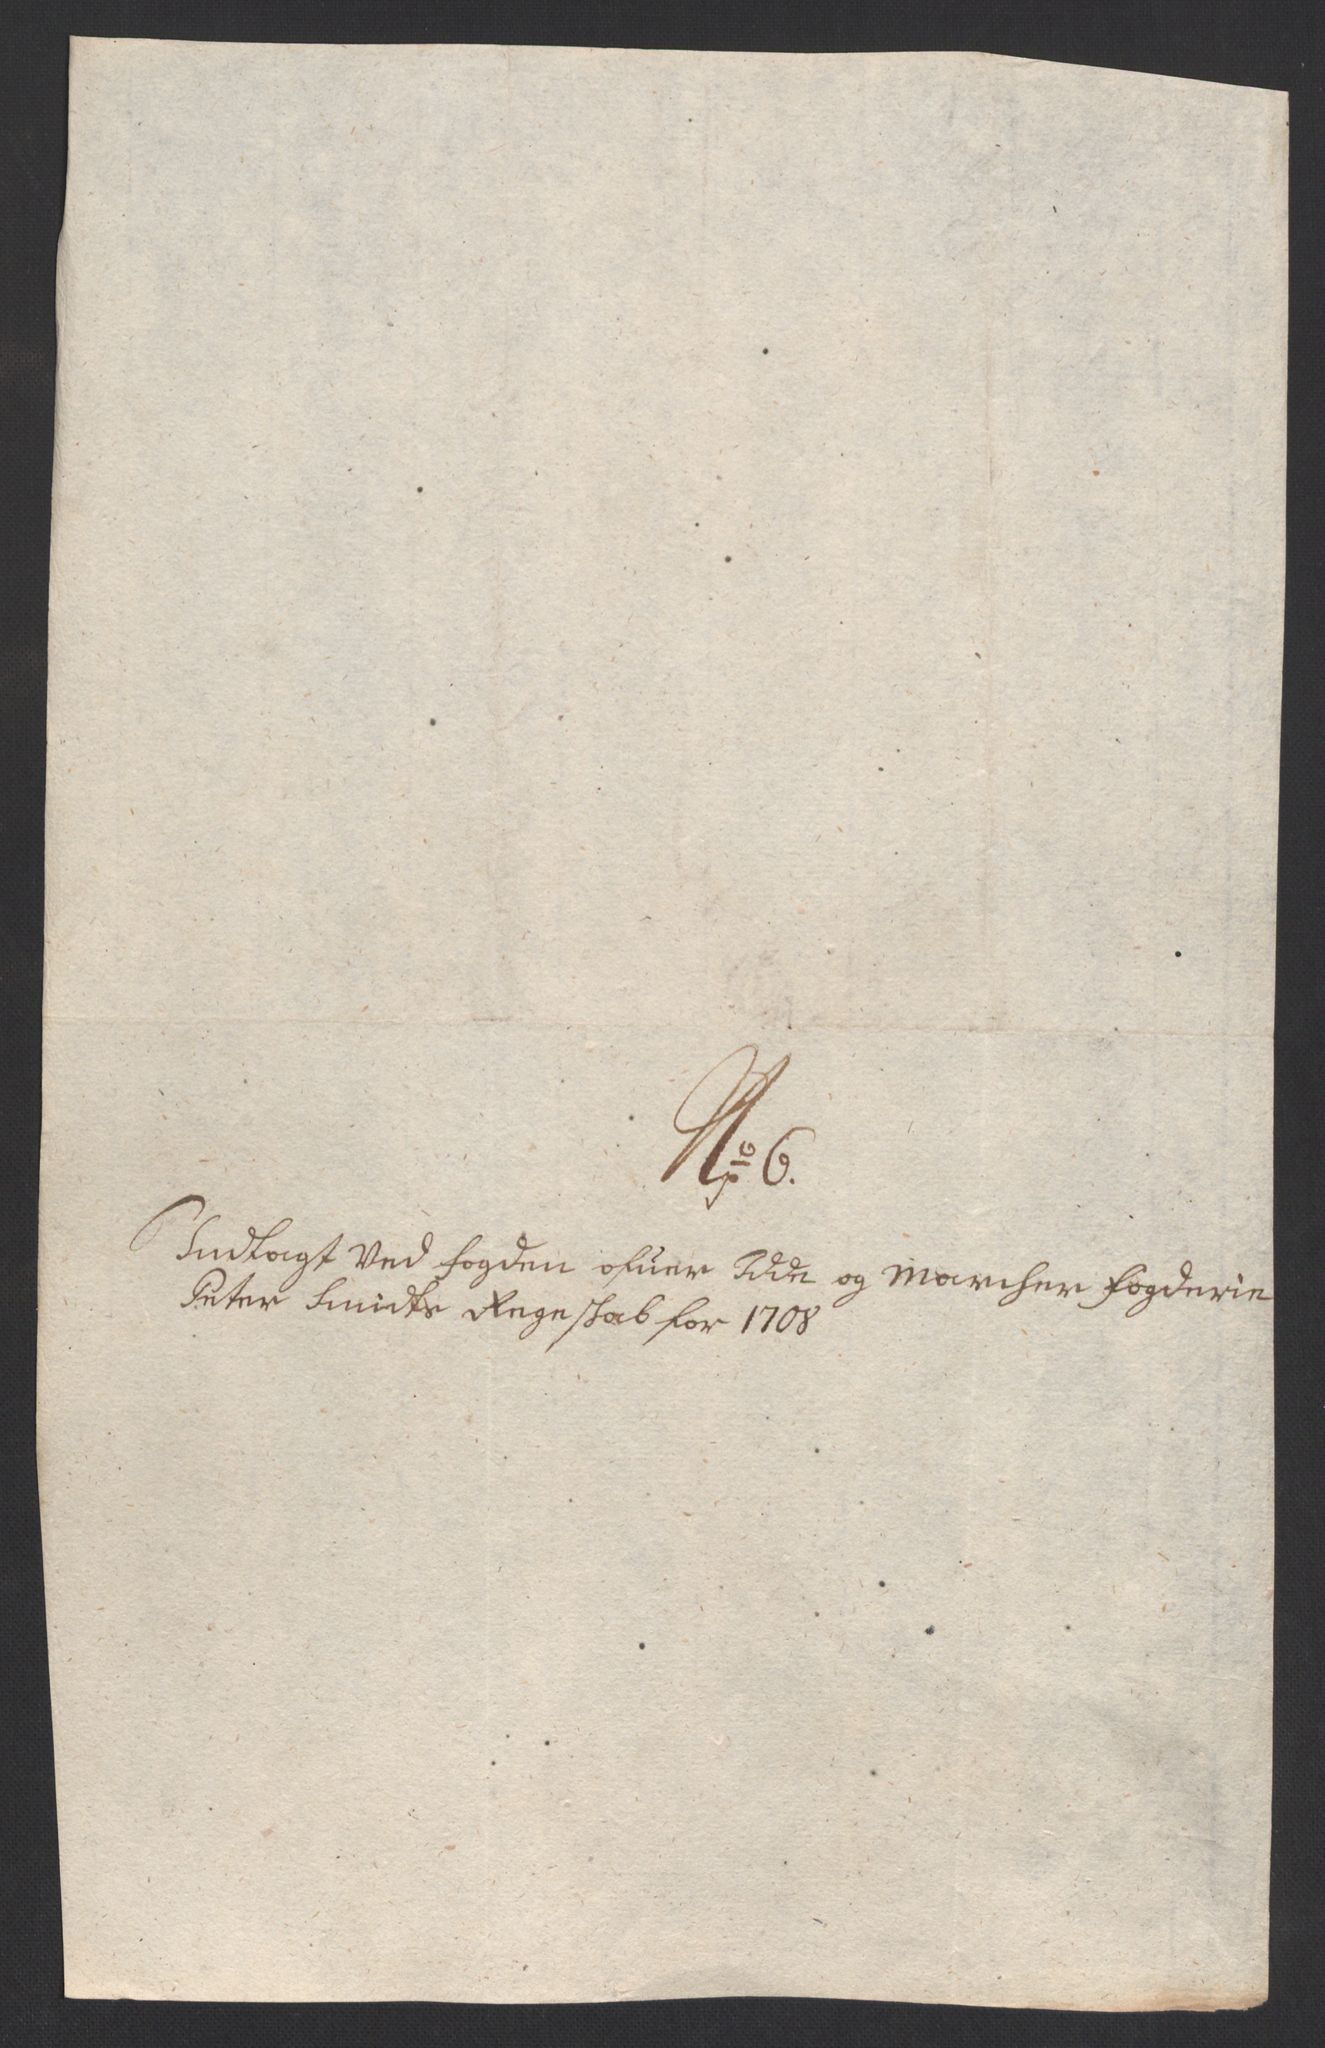 No 6.
Indlagt Ved fogden ofuer Idde og Marcher fogderie
Peter Smidts Regeskab for 1708